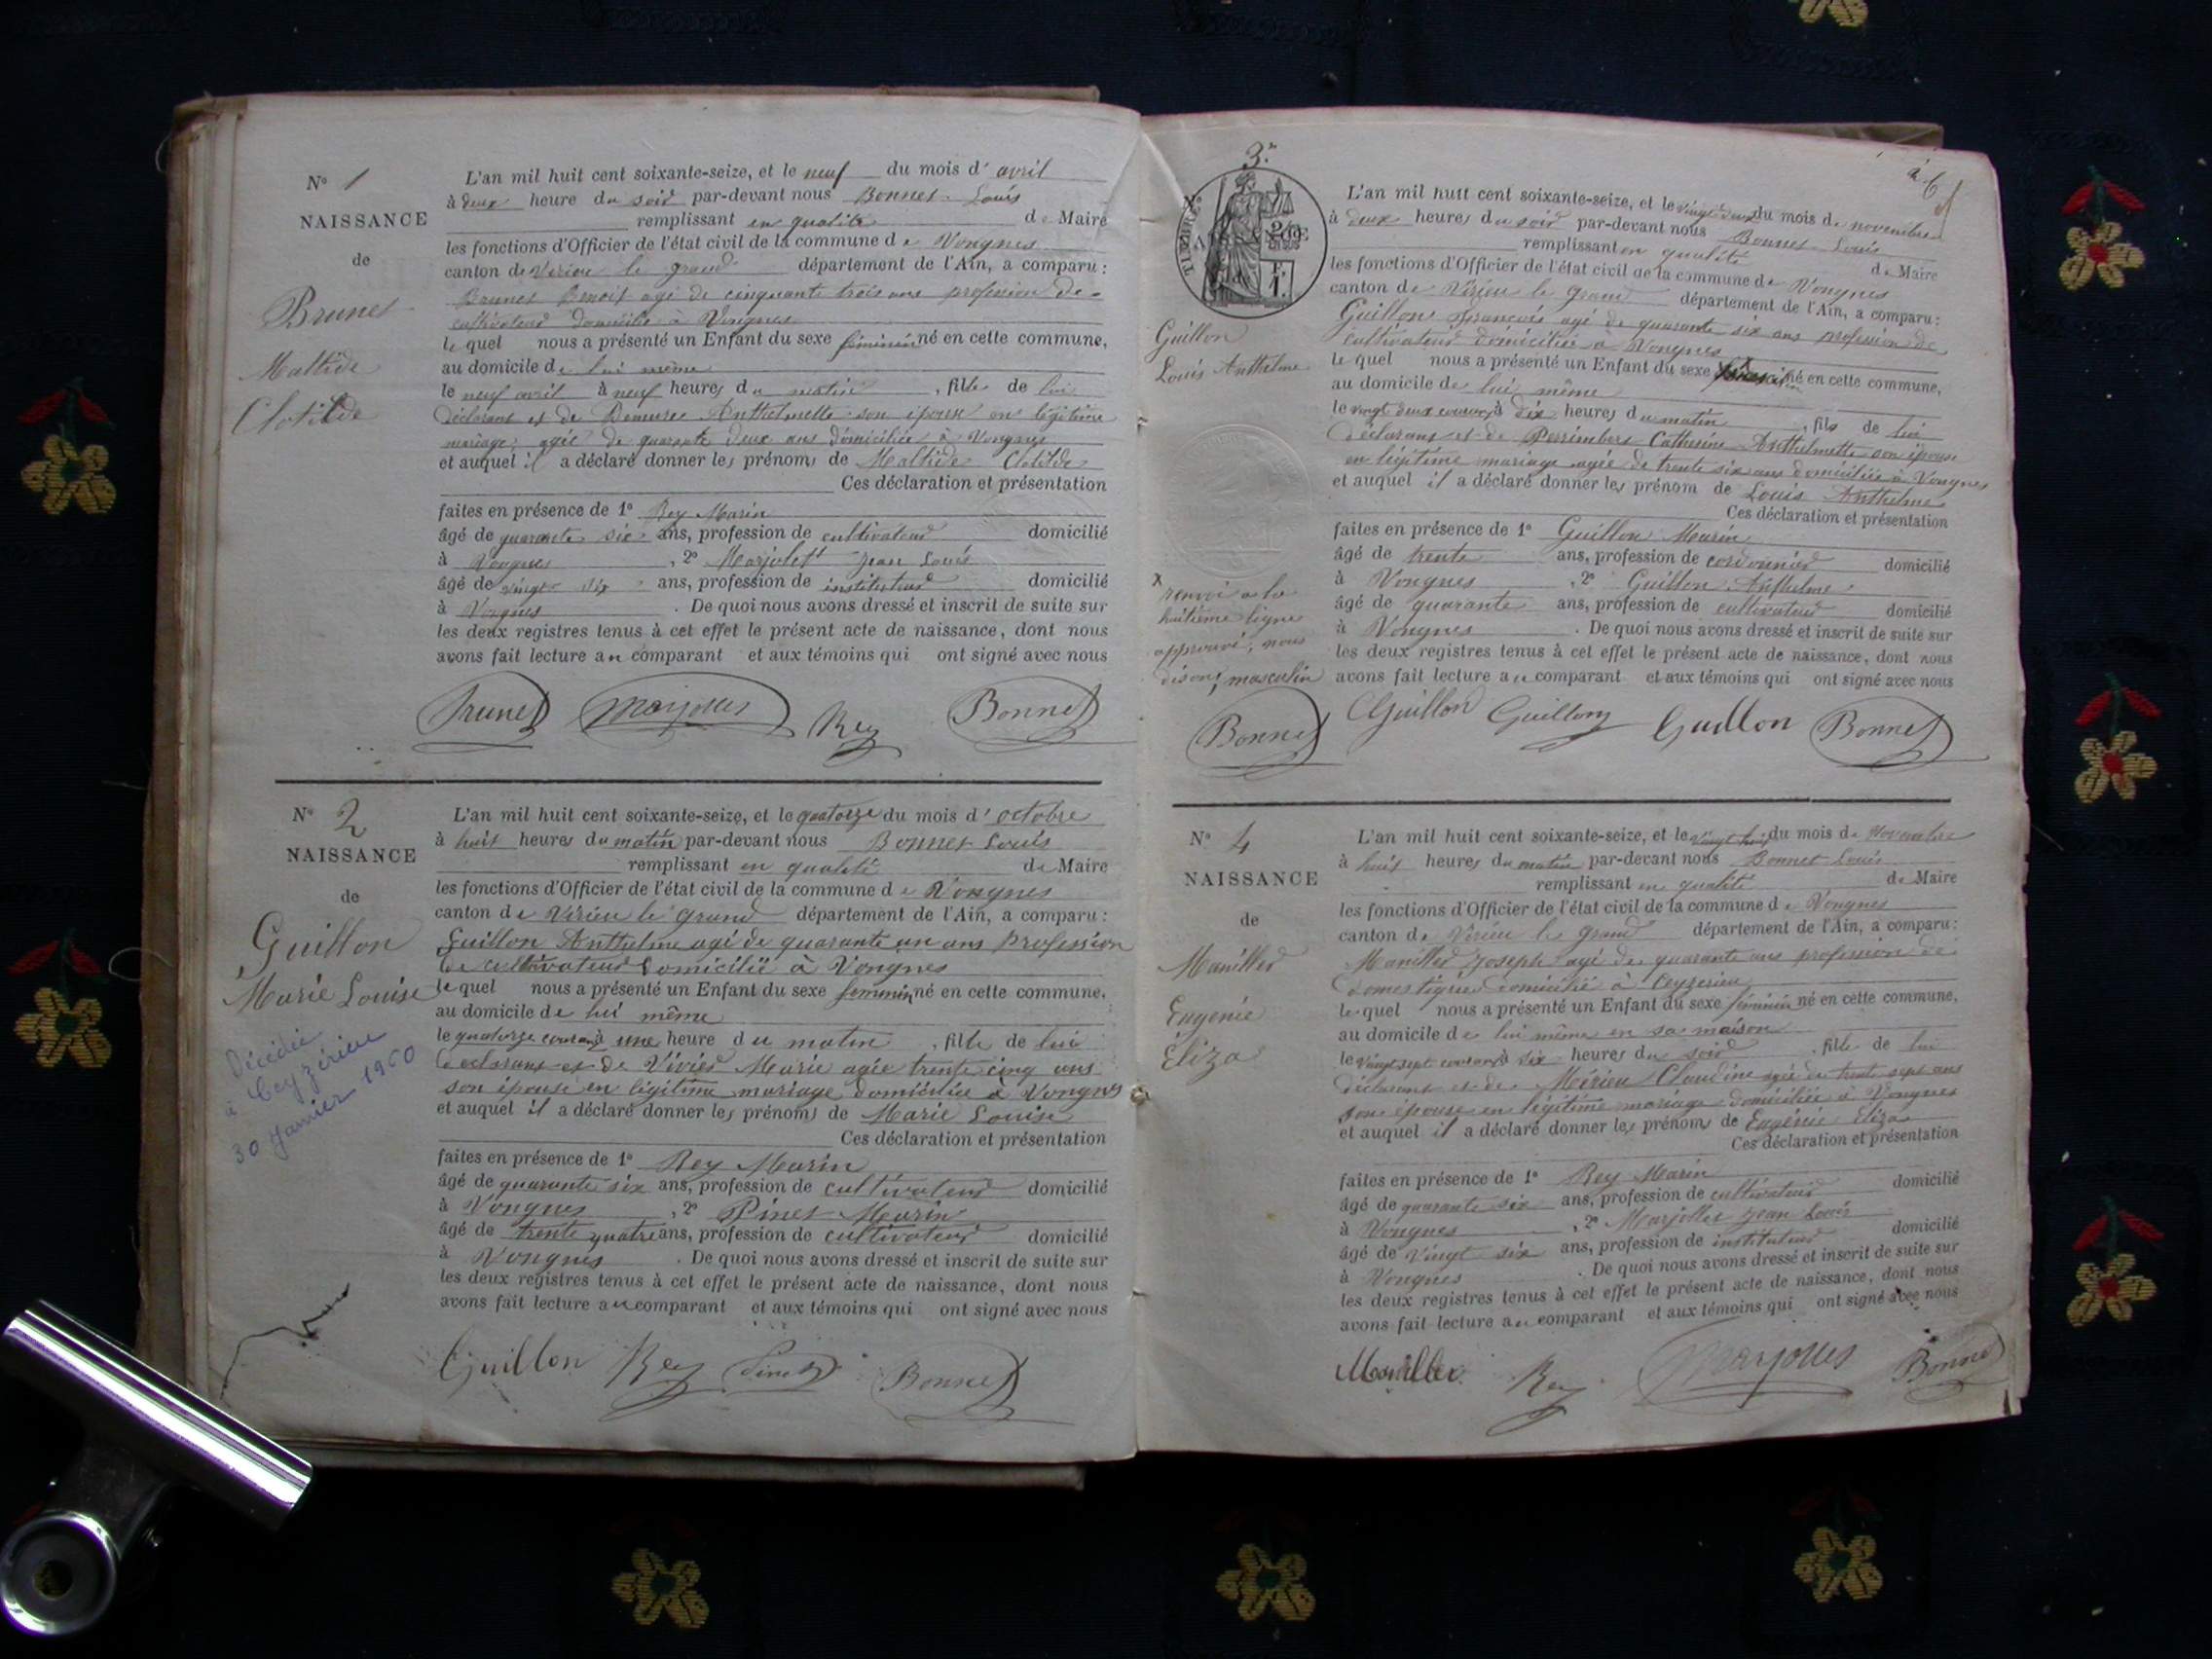 N° 1
NAISSANCE
de
Brunet
Maltide
Clotilde
L'an mil huit cent soixante-seize, et le neuf du mois d'avril
à deux heure du soir par-devant nous Bonnet Louis
remplissant en qualité de Maire
les fonctions d'Officier de l'état civil de la commune de Vongnes
canton de Virieu le grand département de l'Ain, a comparu :
Brunet Benoit agé de cinquante trois ans profession de
cultivateur domicilié à Vongnes
le quel nous a présenté un Enfant du sexe féminin né en cette commune,
au domicile de lui même
le neuf avril à neuf heures du matin, fille de lui
déclarant et de Anthelmette son épouse en légitime
mariage, agée de quarante deux ans domiciliée à Vongnes
et auquel il a déclaré donner les prénoms de Maltide Clotilde
Ces déclaration et présentation
faites en présence de 1° Rey Marin
âgé de quarante six ans, profession de cultivateur domicilié
à Vongnes, 2° Marjollet Jean Louis
âgé de vingt six ans, profession de instituteur domicilié
à Vongnes. De quoi nous avons dressé et inscrit de suite sur
les deux registres tenus à cet effet le présent acte de naissance, dont nous
avons fait lecture au comparant et aux témoins qui ont signé avec nous
Brunet Marjollet Rey Bonnet
N° 2
NAISSANCE
de
Guillon
Marie Louise
Décédée
à Ceyzérieu
30 Janvier 1960
L'an mil huit cent soixante-seize, et le quatorze du mois d'octobre
à huit heures du matin par-devant nous Bonnet Louis
remplissant en qualité de Maire
les fonctions d'Officier de l'état civil de la commune de Vongnes
canton de Virieu le grand département de l'Ain, a comparu :
Guillon Anthelme agé de quarante un ans profession
de cultivateur domicilié à Vongnes
le quel nous a présenté un Enfant du sexe féminin né en cette commune,
au domicile de lui même
le quatorze courant à une heure du matin, fille de lui
déclarant et de Vivier Marie agée trente cinq ans
son épouse en légitime mariage domiciliée à Vongnes
et auquel il a déclaré donner les prénoms de Marie Louise
Ces déclaration et présentation
faites en présence de 1° Rey Marin
âgé de quarante six ans, profession de cultivateur domicilié
à Vongnes, 2° Pinet Marin
âgé de trente quatre ans, profession de cultivateur domicilié
à Vongnes. De quoi nous avons dressé et inscrit de suite sur
les deux registres tenus à cet effet le présent acte de naissance, dont nous
avons fait lecture au comparant et aux témoins qui ont signé avec nous
Guillon Rey Pinet Bonnet
3.
TIMBRE
Guillon
Louis Anthelme
x
renvoi à la
huitième ligne
approuvé, nous
disons masculin
Bonnet
L'an mil huit cent soixante-seize, et le vingt deux du mois de novembre
à deux heures du soir par-devant nous Bonnet Louis
remplissant en qualité de Maire
les fonctions d'Officier de l'état civil de la commune de Vongnes
canton de Virieu le grand département de l'Ain, a comparu :
Guillon François agé de quarante six ans profession de
cultivateur domicilié à Vongnes
le quel nous a présenté un Enfant du sexe né en cette commune,
au domicile de lui même
le vingt deux courant à dix heures du matin, fils de lui
déclarant et de Perrimbert Catherine Anthelmette son épouse
en légitime mariage agée de trente six ans domiciliée à Vongnes
et auquel il a déclaré donner les prénom de Louis Anthelme
Ces déclaration et présentation
faites en présence de 1° Guillon Marin
âgé de trente ans, profession de cordonnier domicilié
à Vongnes, 2° Guillon Anthelme
âgé de quarante ans, profession de cultivateur domicilié
à Vongnes. De quoi nous avons dressé et inscrit de suite sur
les deux registres tenus à cet effet le présent acte de naissance, dont nous
avons fait lecture au comparant et aux témoins qui ont signé avec nous
Guillon Guillon Guillon Bonnet
N° 4
NAISSANCE
de
Maniller
Eugénie
Eliza
L'an mil huit cent soixante-seize, et le vingt huit du mois de Novembre
à huit heures du matin par-devant nous Bonnet Louis
remplissant en qualité de Maire
les fonctions d'Officier de l'état civil de la commune de Vongnes
canton de Virieu le grand département de l'Ain, a comparu :
Maniller Joseph agé de quarante ans profession de
domestique domicilié à Ceyzerieu
le quel nous a présenté un Enfant du sexe féminin né en cette commune,
au domicile de lui même en sa maison
le vingt sept courant à six heures du soir, fille de lui
déclarant et de Mérieu Claudine agée de trente sept ans
son épouse en légitime mariage domiciliée à Vongnes
et auquel il a déclaré donner les prénoms de Eugénie Eliza
Ces déclaration et présentation
faites en présence de 1° Rey Marin
âgé de quarante six ans, profession de cultivateur domicilié
à Vongnes, 2° Marjollet Jean Louis
âgé de vingt six ans, profession de instituteur domicilié
à Vongnes. De quoi nous avons dressé et inscrit de suite sur
les deux registres tenus à cet effet le présent acte de naissance, dont nous
avons fait lecture au comparant et aux témoins qui ont signé avec nous
Maniller Rey Marjollet Bonnet